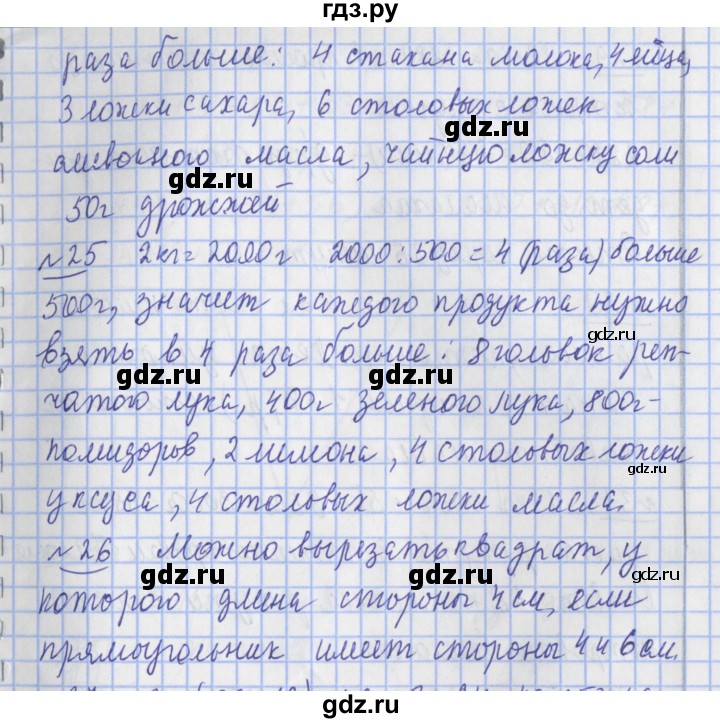 гдз.ру
раза больше: 4 стакана молока, 4 яйца,
3 ложки сахара, 6 столовых ложек
gdz.ru
сливочного масла, чайную ложку соли
gdz.ru
50г дрожжей
№25 2кг = 2000г 2000:500 = 4 (раза) больше
500г, значит каждого продукта нужно
gdz.ru
взять в 4 раза больше: 8 головок реп-
gdz.ru gdz.ru
чатого лука, 400г зеленого лука, 800г-
помидоров, 2 лимона, 4 столовых ложки
gdz.ru
уксуса, 4 столовых ложки масла.
№26 Можно вырезать квадрат, у
gdz.ru gdz.ru
которого длина стороны 4 см, если
прямоугольник имеет стороны 4 и 6 см.